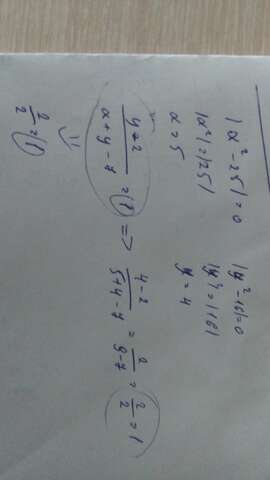 |x² - 25| = 0
|x²| = |25|
x = 5
|y² - 16| = 0
|y²| = |16|
y = 4
y - 2 / x + y - 7 = (1) => 4 - 2 / 5 + 4 - 7 = 2 / 9 - 7 = 2 / 2 = 1
2 / 2 = (1)